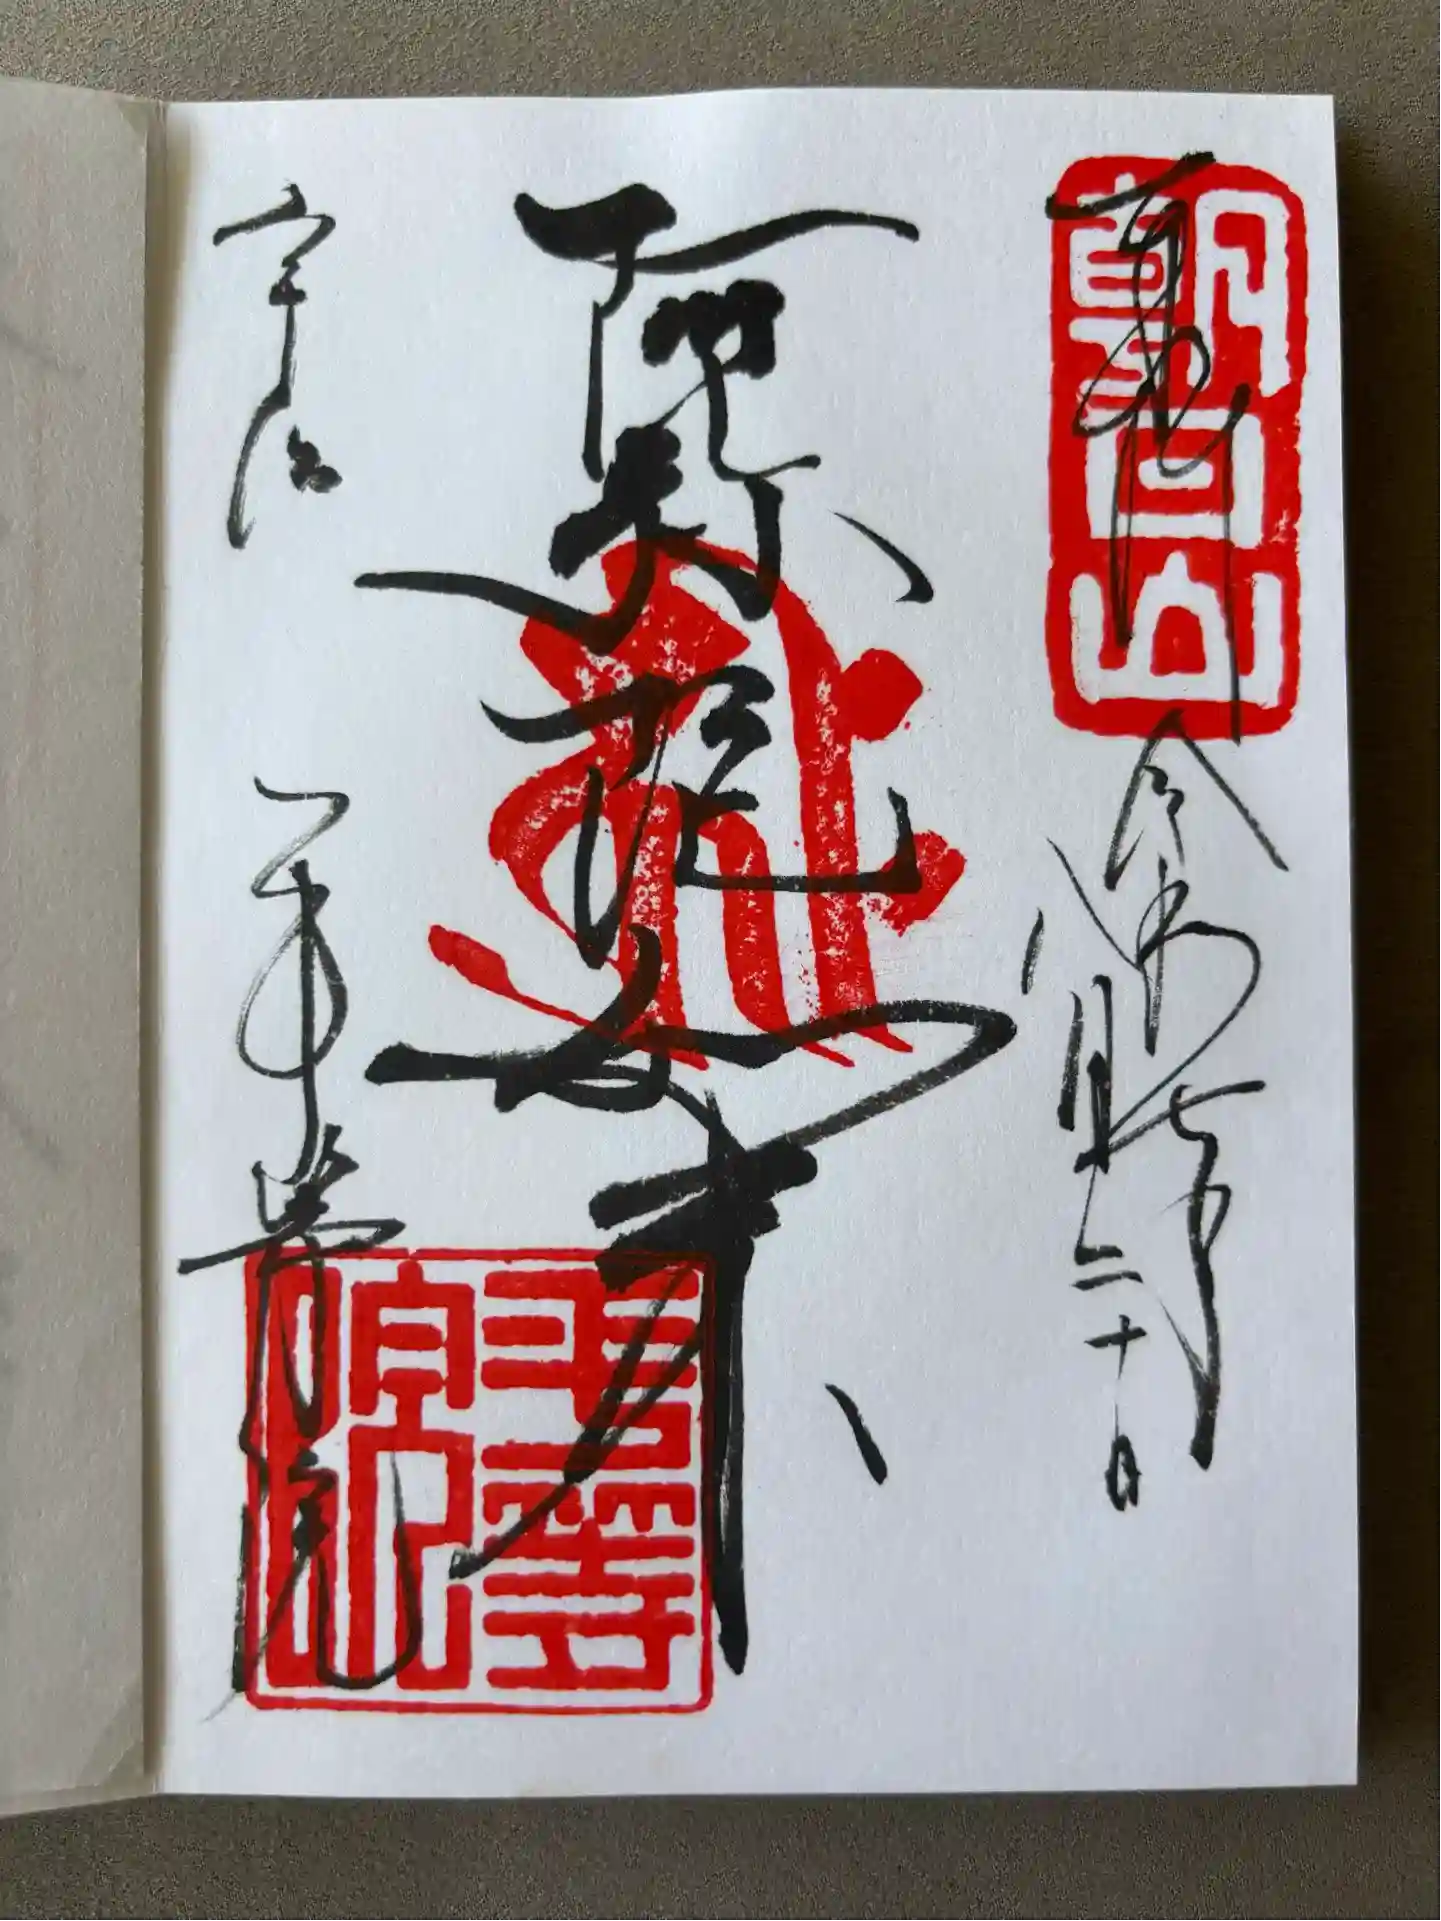 朝日山
奉拝
令和七年
八月二十日
阿弥陀如来
宇治 平等院
平等院